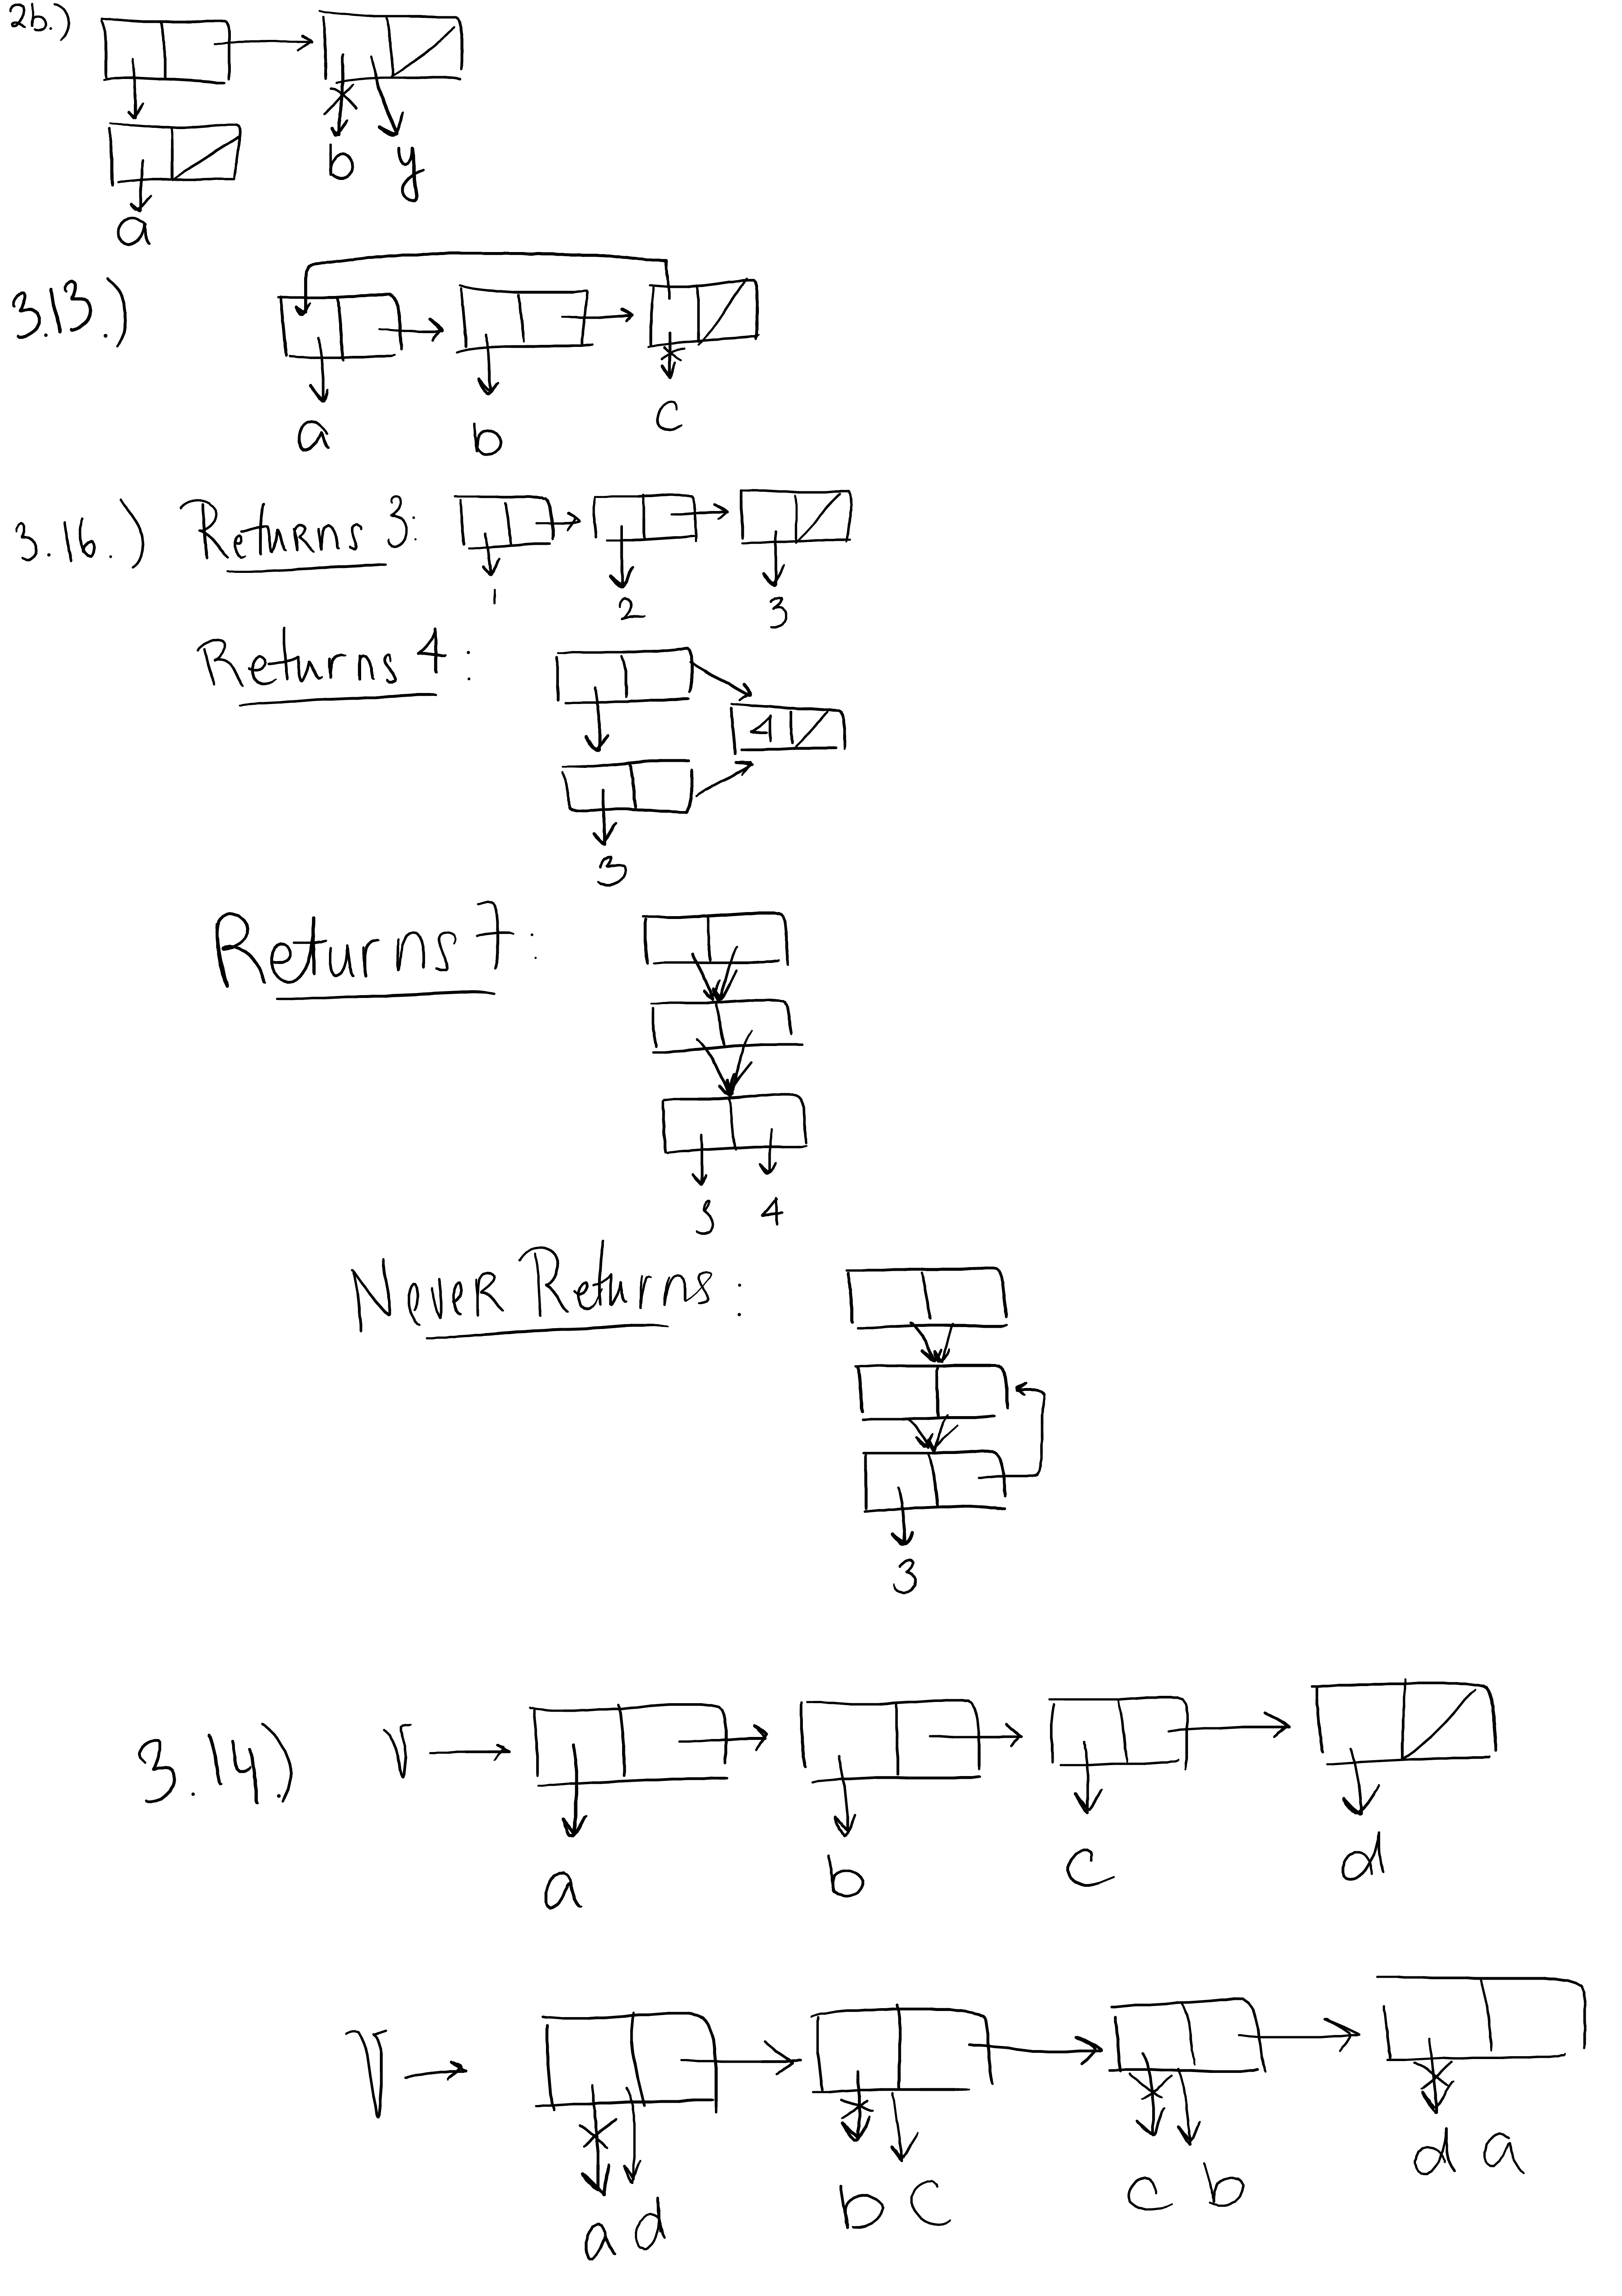 2b.)
b y
a
3.13.)
a b c
3.16.) Returns 3:
1 2 3
Returns 4:
4
3
Returns 7:
3 4
Never Returns:
3
3.14.) V
a b c d
V
a d b c c b d a